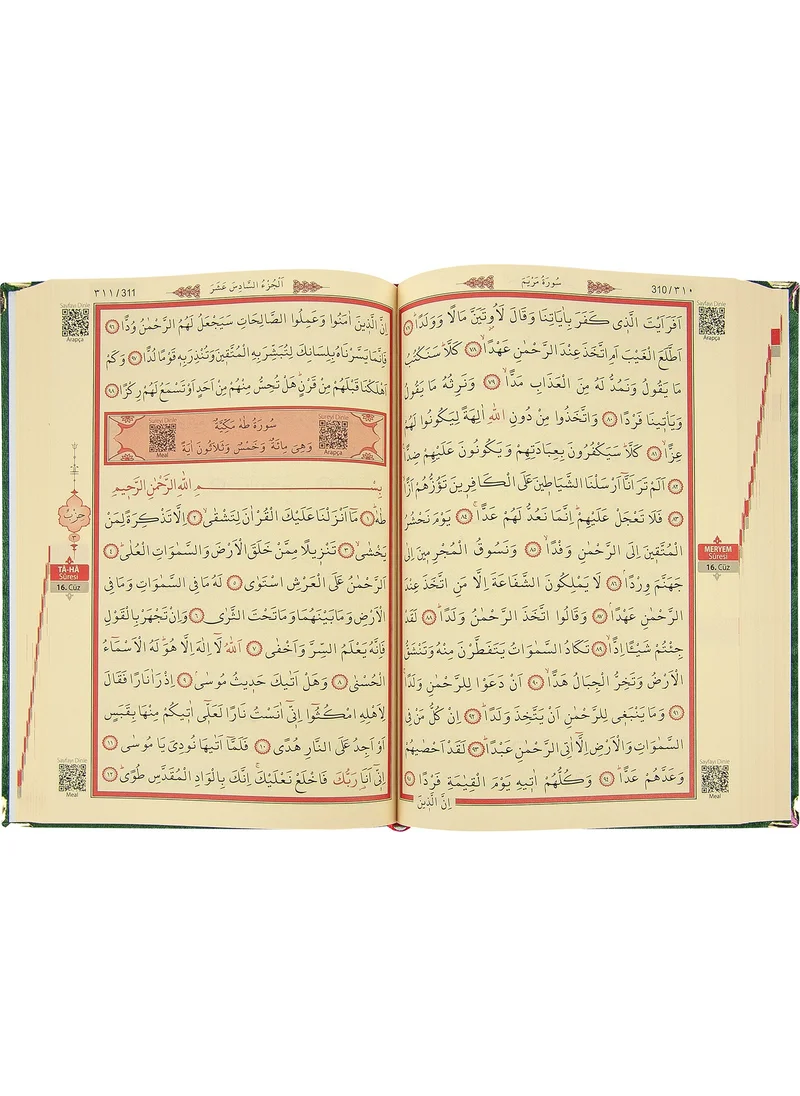 310/٣١٠
سُورَةُ مَرْيَمَ
Sayfayı Dinle
Arapça
اَفَرَاَيْتَ الَّذ۪ي كَفَرَ بِاٰيَاتِنَا وَقَالَ لَاُو۫تَيَنَّ مَالًا وَوَلَدًاۜ ﴿٧٧﴾
اَطَّلَعَ الْغَيْبَ اَمِ اتَّخَذَ عِنْدَ الرَّحْمٰنِ عَهْدًاۙ ﴿٧٨﴾ كَلَّاۜ سَنَكْتُبُ
مَا يَقُولُ وَنَمُدُّ لَهُ مِنَ الْعَذَابِ مَدًّاۙ ﴿٧٩﴾ وَنَرِثُهُ مَا يَقُولُ
وَيَأْت۪ينَا فَرْدًا ﴿٨٠﴾ وَاتَّخَذُوا مِنْ دُونِ اللّٰهِ اٰلِهَةً لِيَكُونُوا لَهُمْ
عِزًّاۙ ﴿٨١﴾ كَلَّاۜ سَيَكْفُرُونَ بِعِبَادَتِهِمْ وَيَكُونُونَ عَلَيْهِمْ ضِدًّا۟
﴿٨٢﴾ اَلَمْ تَرَ اَنَّٓا اَرْسَلْنَا الشَّيَاط۪ينَ عَلَى الْكَافِر۪ينَ تَؤُزُّهُمْ اَزًّاۙ
﴿٨٣﴾ فَلَا تَعْجَلْ عَلَيْهِمْۜ اِنَّمَا نَعُدُّ لَهُمْ عَدًّاۚ ﴿٨٤﴾ يَوْمَ نَحْشُرُ
الْمُتَّق۪ينَ اِلَى الرَّحْمٰنِ وَفْدًاۙ ﴿٨٥﴾ وَنَسُوقُ الْمُجْرِم۪ينَ اِلٰى
جَهَنَّمَ وِرْدًاۢ ﴿٨٦﴾ لَا يَمْلِكُونَ الشَّفَاعَةَ اِلَّا مَنِ اتَّخَذَ عِنْدَ
الرَّحْمٰنِ عَهْدًاۢ ﴿٨٧﴾ وَقَالُوا اتَّخَذَ الرَّحْمٰنُ وَلَدًاۜ ﴿٨٨﴾ لَقَدْ
جِئْتُمْ شَيْـًٔا اِدًّاۙ ﴿٨٩﴾ تَكَادُ السَّمٰوَاتُ يَتَفَطَّرْنَ مِنْهُ وَتَنْشَقُّ
الْاَرْضُ وَتَخِرُّ الْجِبَالُ هَدًّاۙ ﴿٩٠﴾ اَنْ دَعَوْا لِلرَّحْمٰنِ وَلَدًاۚ
﴿٩١﴾ وَمَا يَنْبَغ۪ي لِلرَّحْمٰنِ اَنْ يَتَّخِذَ وَلَدًاۜ ﴿٩٢﴾ اِنْ كُلُّ مَنْ فِي
السَّمٰوَاتِ وَالْاَرْضِ اِلَّٓا اٰتِي الرَّحْمٰنِ عَبْدًاۜ ﴿٩٣﴾ لَقَدْ اَحْصٰيهُمْ
وَعَدَّهُمْ عَدًّاۜ ﴿٩٤﴾ وَكُلُّهُمْ اٰت۪يهِ يَوْمَ الْقِيٰمَةِ فَرْدًا ﴿٩٥﴾
اِنَّ الَّذ۪ينَ
MERYEM
Sûresi
16. Cüz
Sayfayı Dinle
Meal
٣١١/311
اَلْجُزْءُ السَّادِسَ عَشَرَ
Sayfayı Dinle
Arapça
اِنَّ الَّذ۪ينَ اٰمَنُوا وَعَمِلُوا الصَّالِحَاتِ سَيَجْعَلُ لَهُمُ الرَّحْمٰنُ وُدًّا ﴿٩٦﴾
فَاِنَّمَا يَسَّرْنَاهُ بِلِسَانِكَ لِتُبَشِّرَ بِهِ الْمُتَّق۪ينَ وَتُنْذِرَ بِه۪ قَوْمًا لُدًّا ﴿٩٧﴾ وَكَمْ
اَهْلَكْنَا قَبْلَهُمْ مِنْ قَرْنٍۜ هَلْ تُحِسُّ مِنْهُمْ مِنْ اَحَدٍ اَوْ تَسْمَعُ لَهُمْ رِكْزًا ﴿٩٨﴾
سُورَةُ طٰهٰ مَكِّيَّةٌ
وَهِيَ مِائَةٌ وَخَمْسٌ وَثَلَاثُونَ اٰيَةً
Sûreyi Dinle
Arapça
Sûreyi Dinle
Meal
بِسْمِ اللّٰهِ الرَّحْمٰنِ الرَّح۪يمِ
طٰهٰۜ ﴿١﴾ مَٓا اَنْزَلْنَا عَلَيْكَ الْقُرْاٰنَ لِتَشْقٰىۙ ﴿٢﴾ اِلَّا تَذْكِرَةً لِمَنْ
يَخْشٰىۙ ﴿٣﴾ تَنْز۪يلًا مِمَّنْ خَلَقَ الْاَرْضَ وَالسَّمٰوَاتِ الْعُلٰىۜ ﴿٤﴾
اَلرَّحْمٰنُ عَلَى الْعَرْشِ اسْتَوٰى ﴿٥﴾ لَهُ مَا فِي السَّمٰوَاتِ وَمَا فِي
الْاَرْضِ وَمَا بَيْنَهُمَا وَمَا تَحْتَ الثَّرٰى ﴿٦﴾ وَاِنْ تَجْهَرْ بِالْقَوْلِ
فَاِنَّهُ يَعْلَمُ السِّرَّ وَاَخْفٰى ﴿٧﴾ اَللّٰهُ لَٓا اِلٰهَ اِلَّا هُوَۜ لَهُ الْاَسْمَٓاءُ
الْحُسْنٰى ﴿٨﴾ وَهَلْ اَتٰيكَ حَد۪يثُ مُوسٰىۢ ﴿٩﴾ اِذْ رَاٰ نَارًا فَقَالَ
لِاَهْلِهِ امْكُثُٓوا اِنّ۪ٓي اٰنَسْتُ نَارًا لَعَلّ۪ٓي اٰت۪يكُمْ مِنْهَا بِقَبَسٍ
اَوْ اَجِدُ عَلَى النَّارِ هُدًى ﴿١٠﴾ فَلَمَّٓا اَتٰيهَا نُودِيَ يَا مُوسٰى ﴿١١﴾
اِنّ۪ٓي اَنَا۬ رَبُّكَ فَاخْلَعْ نَعْلَيْكَۚ اِنَّكَ بِالْوَادِ الْمُقَدَّسِ طُوًىۜ ﴿١٢﴾
حزب
٣
TÂ-HÂ
Sûresi
16. Cüz
Sayfayı Dinle
Meal